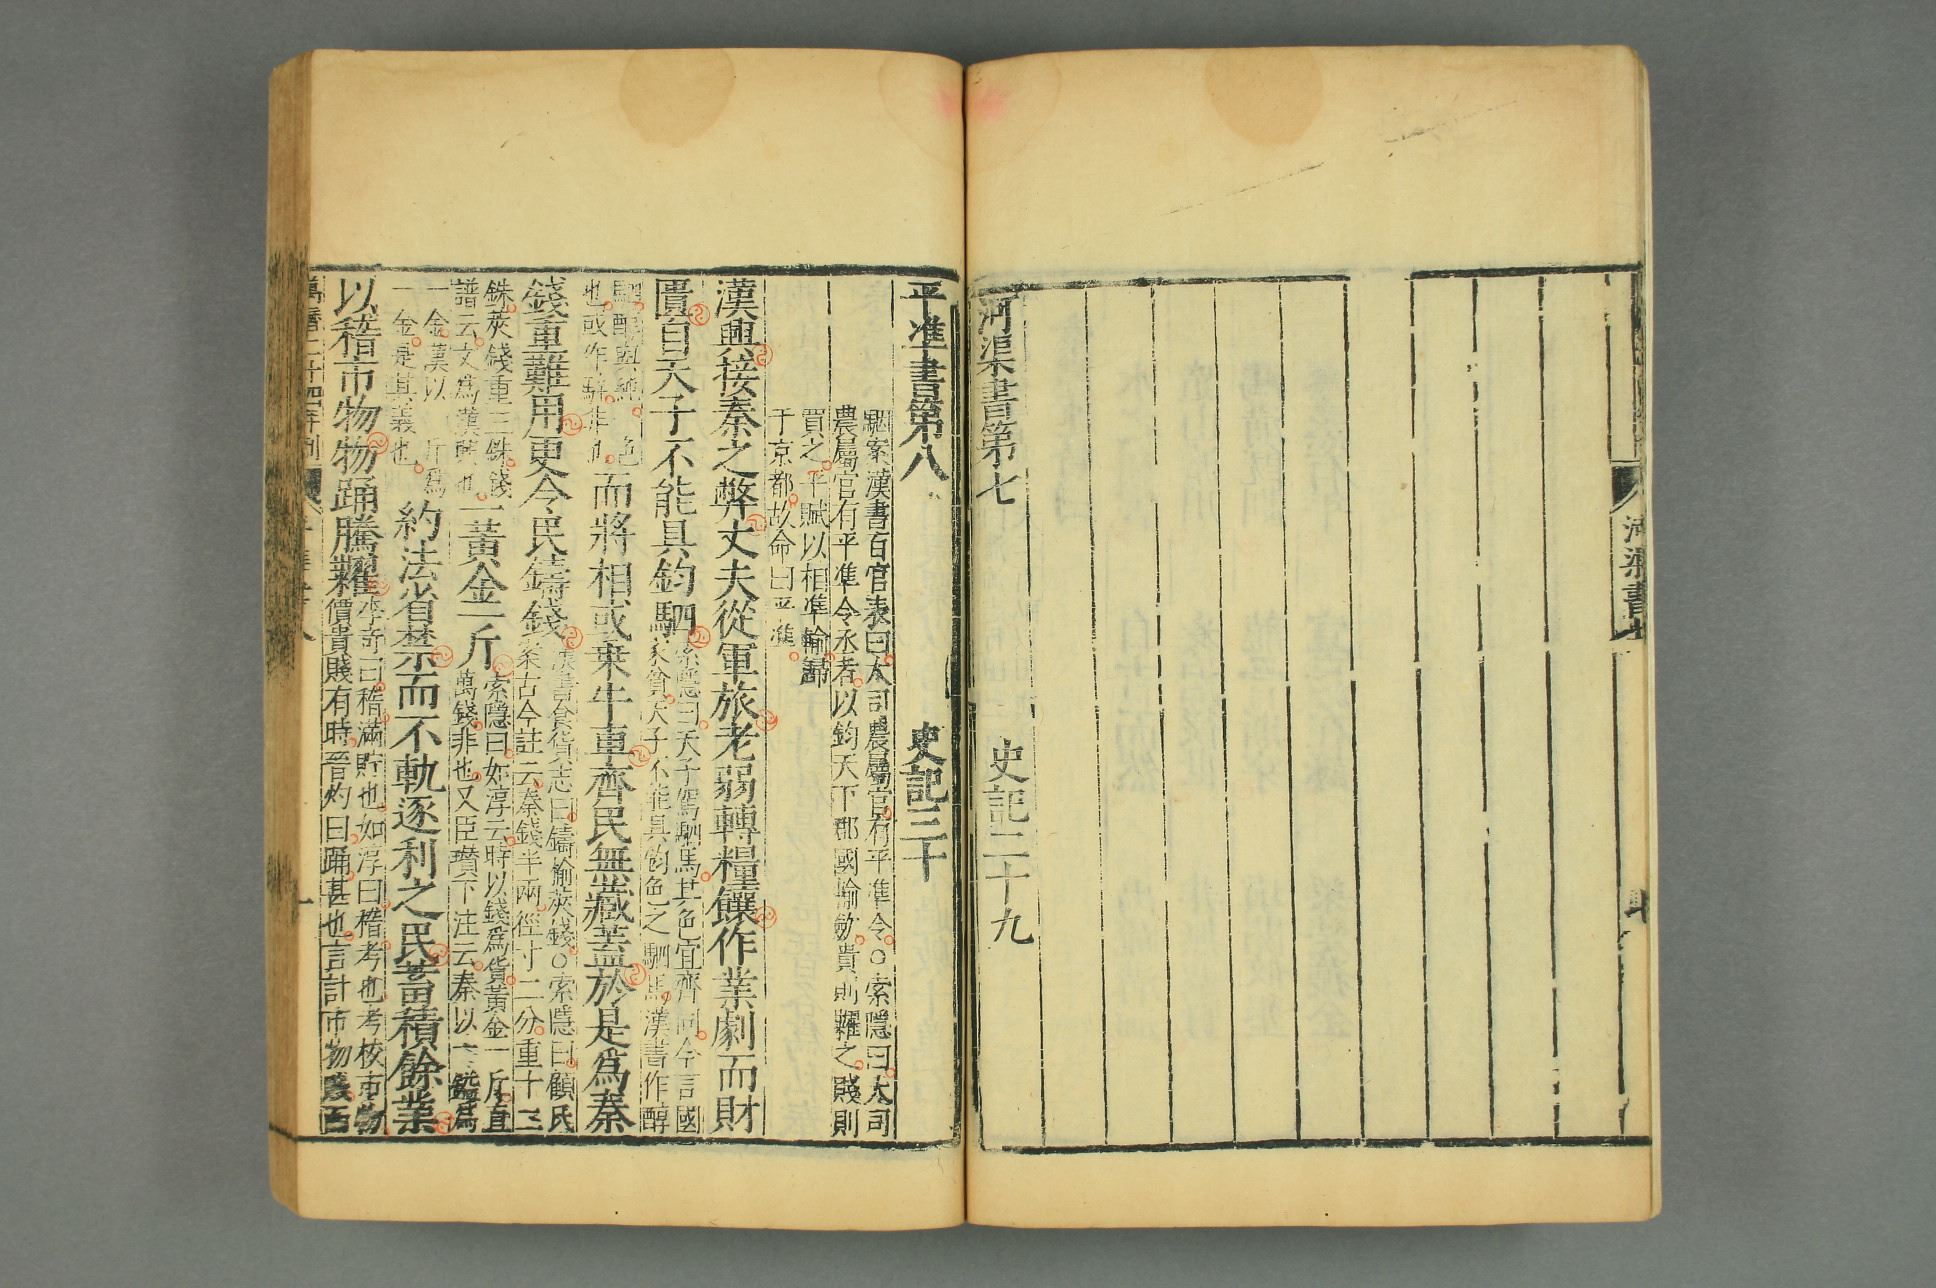 河渠書
河渠書第七　史記二十九
平準書第八　史記三十
駰案漢書百官表曰大司農屬官有平準令○索隱曰大司
農屬官有平準令丞者以鈞天下郡國輸斂貴則糶之賤則
買之平賦以相準輸歸
于京都故命曰平準
漢興接秦之弊丈夫從軍旅老弱轉糧饟作業劇而財
匱自天子不能具鈞駟
索隱曰天子駕駟馬其色宜齊同今言國
家貧天子不能具鈞色之駟馬漢書作醇
駟醇與純一色
也或作騂非也
而將相或乗牛車齊民無藏蓋於是爲秦
錢重難用更令民鑄錢
漢書食貨志曰鑄榆莢錢○索隱曰顧氏
案古今註云秦錢半兩徑寸二分重十二
銖莢錢重三銖錢
譜云文爲漢興也
一黃金一斤
索隱曰如淳云時以錢爲貨黃金一斤直
萬錢非也又臣瓚下注云秦以一鎰爲
一金漢以一斤爲
一金是其義也
約法省禁而不軌逐利之民蓄積餘業
以稽市物物踊騰糶
李奇曰稽滿貯也如淳曰稽考也考校市物
價貴賤有時晉灼曰踊甚也言計市物賤而